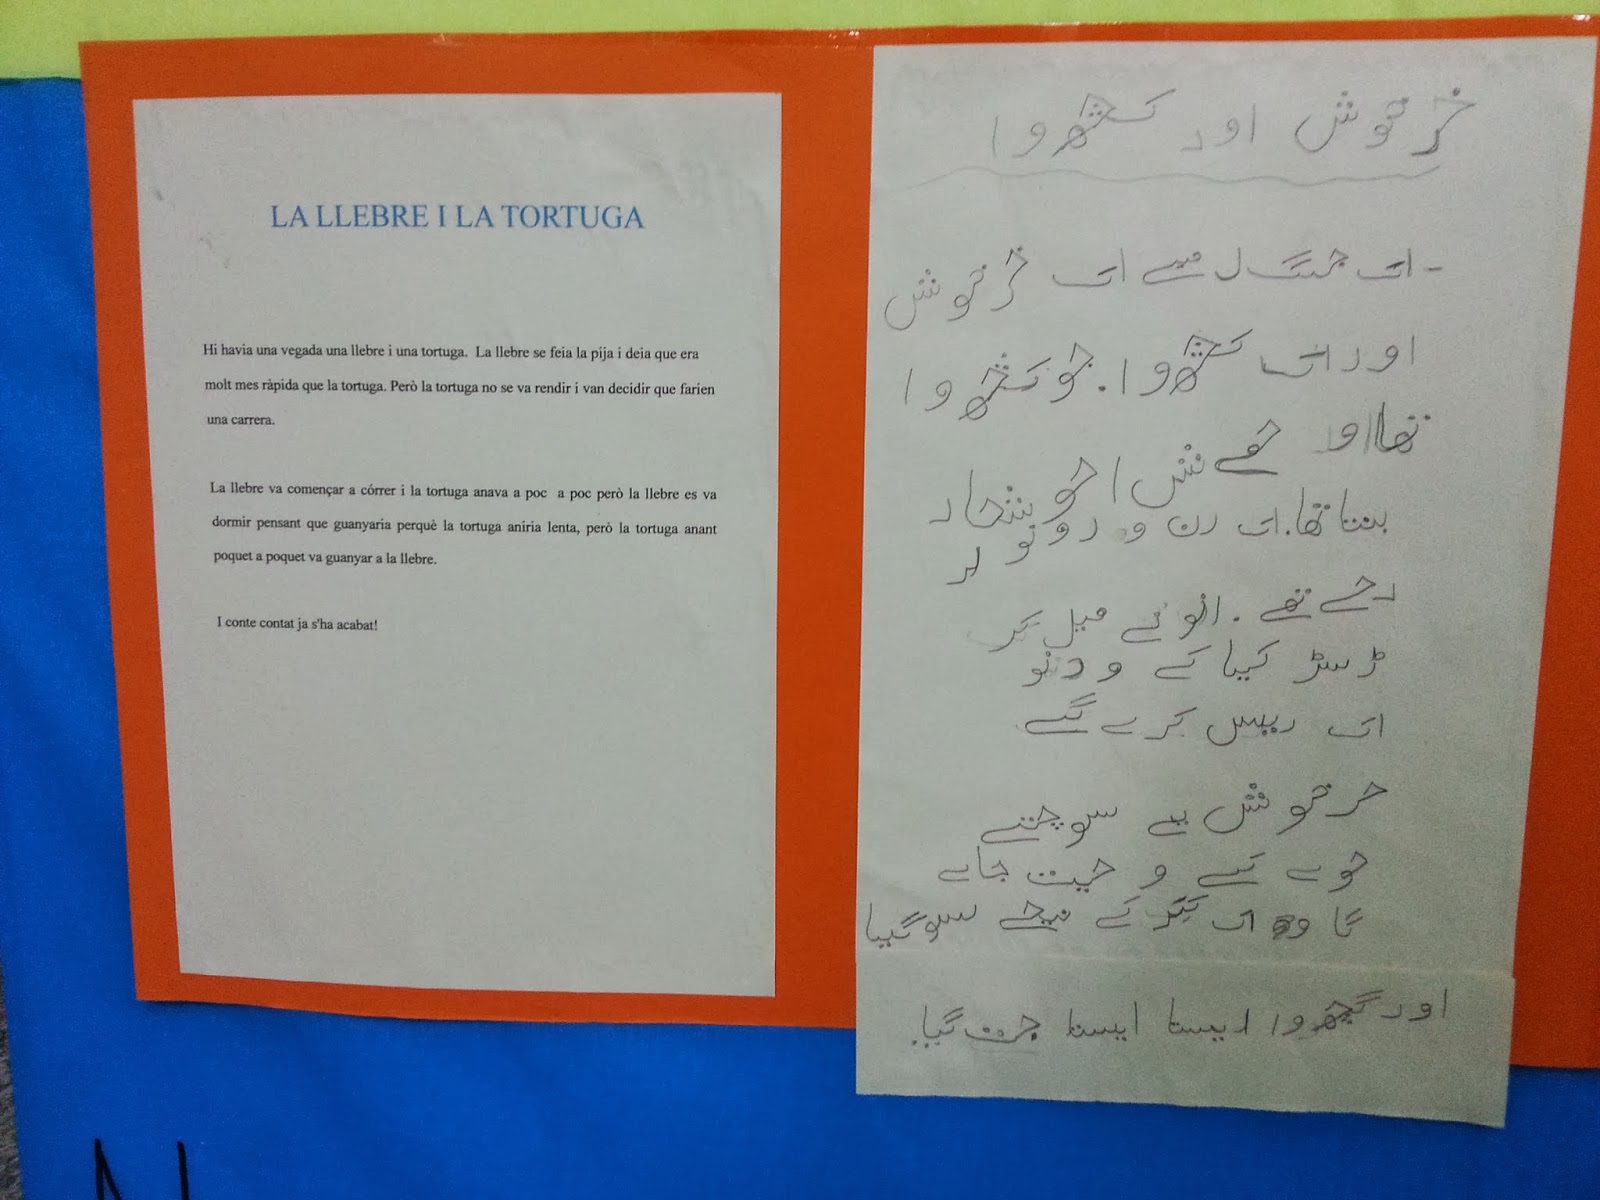 LA LLEBRE I LA TORTUGA
Hi havia una vegada una llebre i una tortuga. La llebre se feia la pija i deia que era
molt mes ràpida que la tortuga. Però la tortuga no se va rendir i van decidir que farien
una carrera.
La llebre va començar a córrer i la tortuga anava a poc a poc però la llebre es va
dormir pensant que guanyaria perquè la tortuga aniria lenta, però la tortuga anant
poquet a poquet va guanyar a la llebre.
I conte contat ja s'ha acabat!
خرخوش اور کچھوا
-اک جنگل میے اک خرخوش
اور اک کچھوا. جو کچھوا
تھا اور
بنتا تھا. اک دن و دونو لر
رہے تھے. انو نے میل کر
کیا کے و دنو
اک رییس کرے گے
خرخوش یے سوچتے
ہوے کے و جیت جاے
گا وہ اک کے نیچے سو گیا
اور گچھوا ایستا ایستا جت گیا.
N